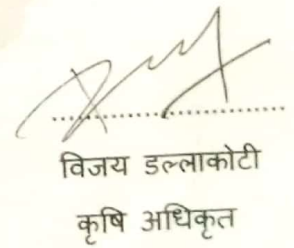 विजय डल्लाकोटी
कृषि अधिकृत